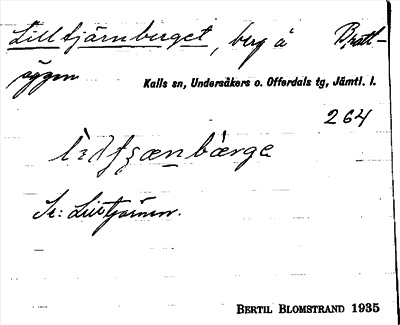 Lilltjärnberget, berg å Bratt-
äggen
Kalls sn, Undersåkers o. Offerdals tg, Jämtl. l.
264
Se: Lilltjärnen.
BERTIL BLOMSTRAND 1935